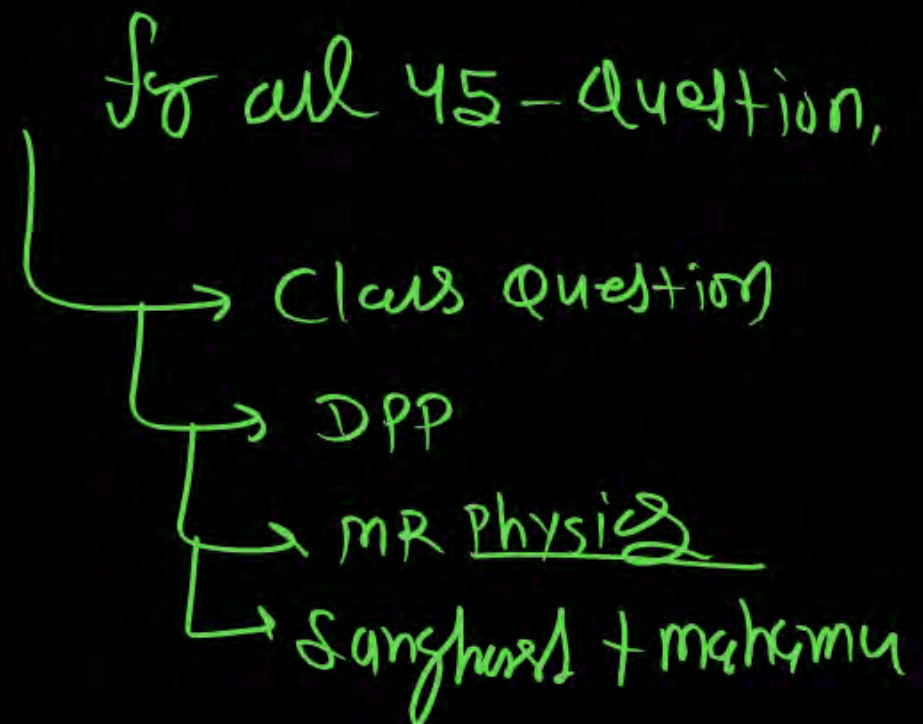 for all 45-Question,
Class Question
DPP
MR Physics
Sangharsh + mahamu